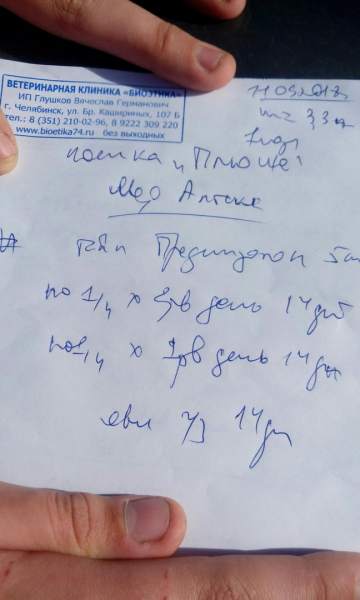 ВЕТЕРИНАРНАЯ КЛИНИКА «БИОЭТИКА»
ИП Глушков Вячеслав Германович
г. Челябинск, ул. Бр. Кашириных, 107 Б
тел.: 8 (351) 210-02-96, 8 9222 309 220
www.bioetika74.ru без выходных
1 год
кошка
Мед Аптека
Преднизолон 5
по 1/4 х 2 р в день 14 дней
по 1/4 х 1 р в день 14 дн
14 дн